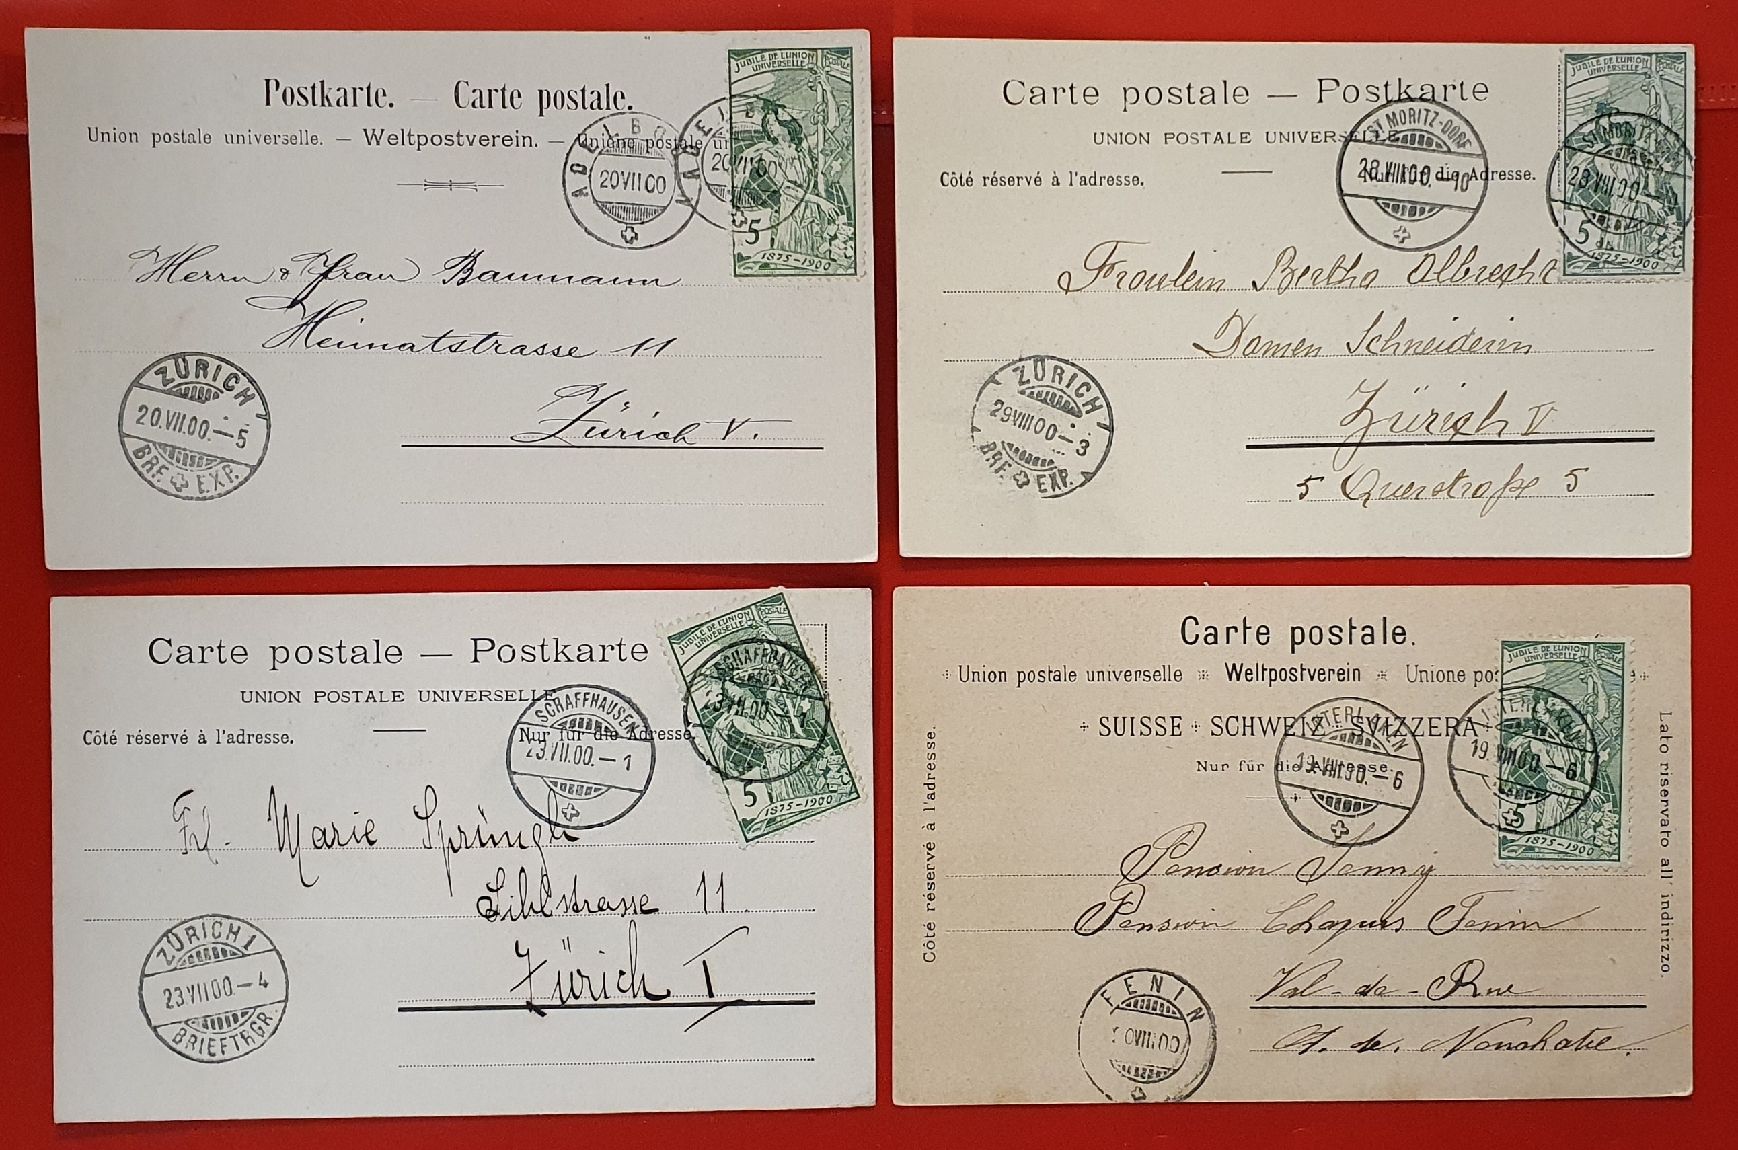 Postkarte. — Carte postale.
Union postale universelle. — Weltpostverein. — Unione postale un
ADELBO
20 VII 00
ADELB
20 VII 00
JUBILÉ DE L'UNION POSTALE
UNIVERSELLE
5
1875–1900
Herrn & Frau Baumann
Heimatstrasse 11
Zürich V.
ZÜRICH 1
20.VII.00.–5
BRF. EXP.
Carte postale — Postkarte
UNION POSTALE UNIVERSELLE
Côté réservé à l'adresse.
Nur für die Adresse.
ST MORITZ-DORF
28.VIII.00.–10
ST MORITZ-DORF
28.VIII.00.–10
JUBILÉ DE L'UNION POSTALE
UNIVERSELLE
5
1875–1900
Fräulein Bertha Albrecht
Damen Schneiderin
Zürich V
5 Querstraße 5
ZÜRICH 1
29 VIII 00–3
BRF. EXP.
Carte postale — Postkarte
UNION POSTALE UNIVERSELLE
Côté réservé à l'adresse.
Nur für die Adresse.
SCHAFFHAUSEN
23.VII.00.–1
SCHAFFHAUSEN
23.VII.00.–1
JUBILÉ DE L'UNION POSTALE
UNIVERSELLE
5
1875–1900
Frl. Marie Sprüngli
Sihlstrasse 11.
Zürich I
ZÜRICH 1
23 VII 00.–4
BRIEFTRGR.
Carte postale.
Union postale universelle Weltpostverein Unione pos
SUISSE SCHWEIZ SVIZZERA
Nur für die Adresse.
Côté réservé à l'adresse.
Lato riservato all' indirizzo.
INTERLAKEN
19.VIII.00.–6
INTERLAKEN
19.VIII.00.–6
JUBILÉ DE L'UNION POSTALE
UNIVERSELLE
5
1875–1900
Pension Jenny
Pension Chapuis Fenin
Val-de-Rue
Ct. de
FENIN
0 VIII 00